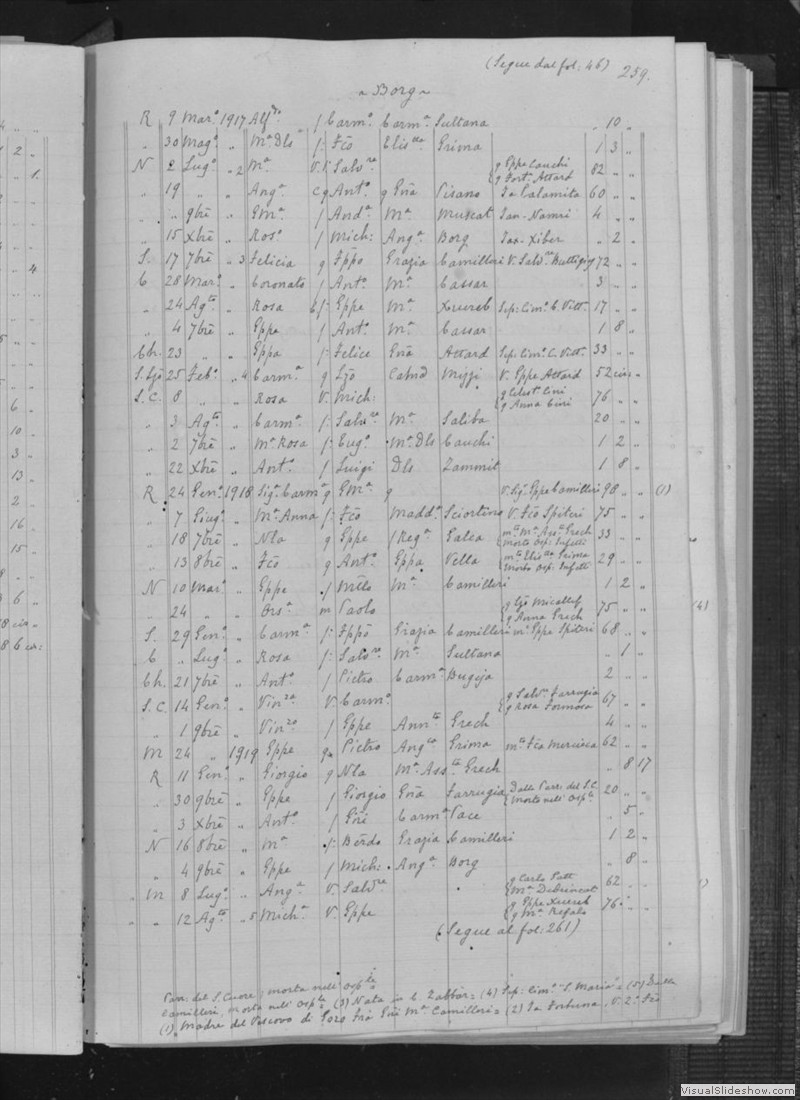 (Segue dal fol: 46) 259.
~ Borg ~
R 9 Marº 1917 Alfᵈº f Carmº Carmª Sultana " 10 "
" 30 Magº " Mª Dls f: Fcõ Elisᵗᵗª Grima 1 3 "
N 2 Lugº " 2 Mª V. V: Salvʳᵉ g Eppe Cauchi g Fort. Attard 82 " "
" 19 " " Angª C g Antº g Gñã Pisano Ta Calamita 60 " "
" " 9brẽ " GMª f Andª Mª Muscat Tan-Namri 4 " "
" 15 Xbrẽ " Rosº f Mich: Angª Borg Tax-Xiber " 2 "
S. 17 7brẽ " 3 Felicia g Fppõ Grazia Camilleri V. Salvʳᵉ Buttigieg 72 " "
C 28 Marº " Coronato f Antº Mª Cassar 3 " "
" 24 Agᵗº " Rosa f: Eppe Mª Xuereb Sep: Cimº C. Vittª 17 " "
" 4 7brẽ " Eppe f Antº Mª Cassar 1 8 "
Ch. 23 " " Eppa f: Felice Gñã Attard Sep: Cimº C. Vittª 33 " "
S. Ljõ 25 Febº " 4 Carmª g Ljõ Catnã Mizzi V. Eppe Attard 52 cir "
S. C. 8 " " Rosa V. Mich: g Celestº Cini g Anna Cini 76 " "
" 3 Agᵗº " Carmª f: Salvʳᵉ Mª Saliba 20 " "
" 2 7brẽ " Mª Rosa f: Eugº Mª Dls Cauchi 1 2 "
" 22 Xbrẽ " Antº f Luigi Dls Zammit 1 8 "
R 24 Genº 1918 Sigª Carmª g GMª g V. Sigʳ Eppe Camilleri 98 " " (1)
" 7 Giugº " Mª Anna f: Fcõ Maddª Sciortino V. Fcõ Spiteri 75 " "
" 18 7brẽ " Nla g Eppe f Regª Galea mᵗº Mª Assᵗª Grech morto Osp: Infetti 33 " "
" 13 8brẽ " Fcõ g Antº Eppa Vella mᵗº Elisᵗᵗª Grima morto Osp: Infetti 29 " "
N 10 Marº " Eppe f Mtlõ Mª Camilleri 1 2 "
" 24 " " Orsª m Paolo g Ljõ Micallef g Anna Grech 75 " " (4)
S. 29 Genº " Carmª f: Fppõ Grazia Camilleri mª Eppe Spiteri 68 " "
C " Lugº " Rosa f: Salvʳᵉ Mª Sultana " 1 "
Ch. 21 7brẽ " Antº f Pietro Carmª Bugeja 2 " "
S. C. 14 Genº " Vinᶻª V. Carmº g Salvʳᵉ Farrugia g Rosa Formosa 67 " "
" 1 9brẽ " Vinᶻº f Eppe Annᵗᵗª Grech 4 " "
M 24 " 1919 Eppe g Pietro Angª Grima mᵗº Fca Mercieca 62 " "
R 11 Genº " Giorgio g Nla Mª Assᵗª Grech " 8 17
" 30 9brẽ " Eppe f Giorgio Gñã Farrugia Dalla Parr: del S. C. morto nell' Ospˡᵉ 20 " "
" 3 Xbrẽ " Antº f Gñi Carmª Pace " 5 "
N 16 8brẽ " Mª f: Berdº Grazia Camilleri 1 2 "
" 4 9brẽ " Eppe f Mich: Angª Borg " 8 "
" M 8 Lugº " Angª V. Salvʳᵉ g Carlo Patt Mª Debrincat 62 " "
" " 12 Agᵗº " 5 Michª V. Eppe g Eppe Xuereb g Mª Refalo 76 " "
(Segue al fol: 261)
Parr: del S. Cuore, morta nell' Ospˡᵉ
Camilleri, morta nell' Ospˡᵉ (3) Nata in C. Zabbar = (4) Sep: Cimº S. Mariaº = (5) Dalla
(1) Madre del Vescovo di Gozo Frà Gñi Mª Camilleri = (2) Ta Fortuna, V. 2º Fcõ
VisualSlideshow.com